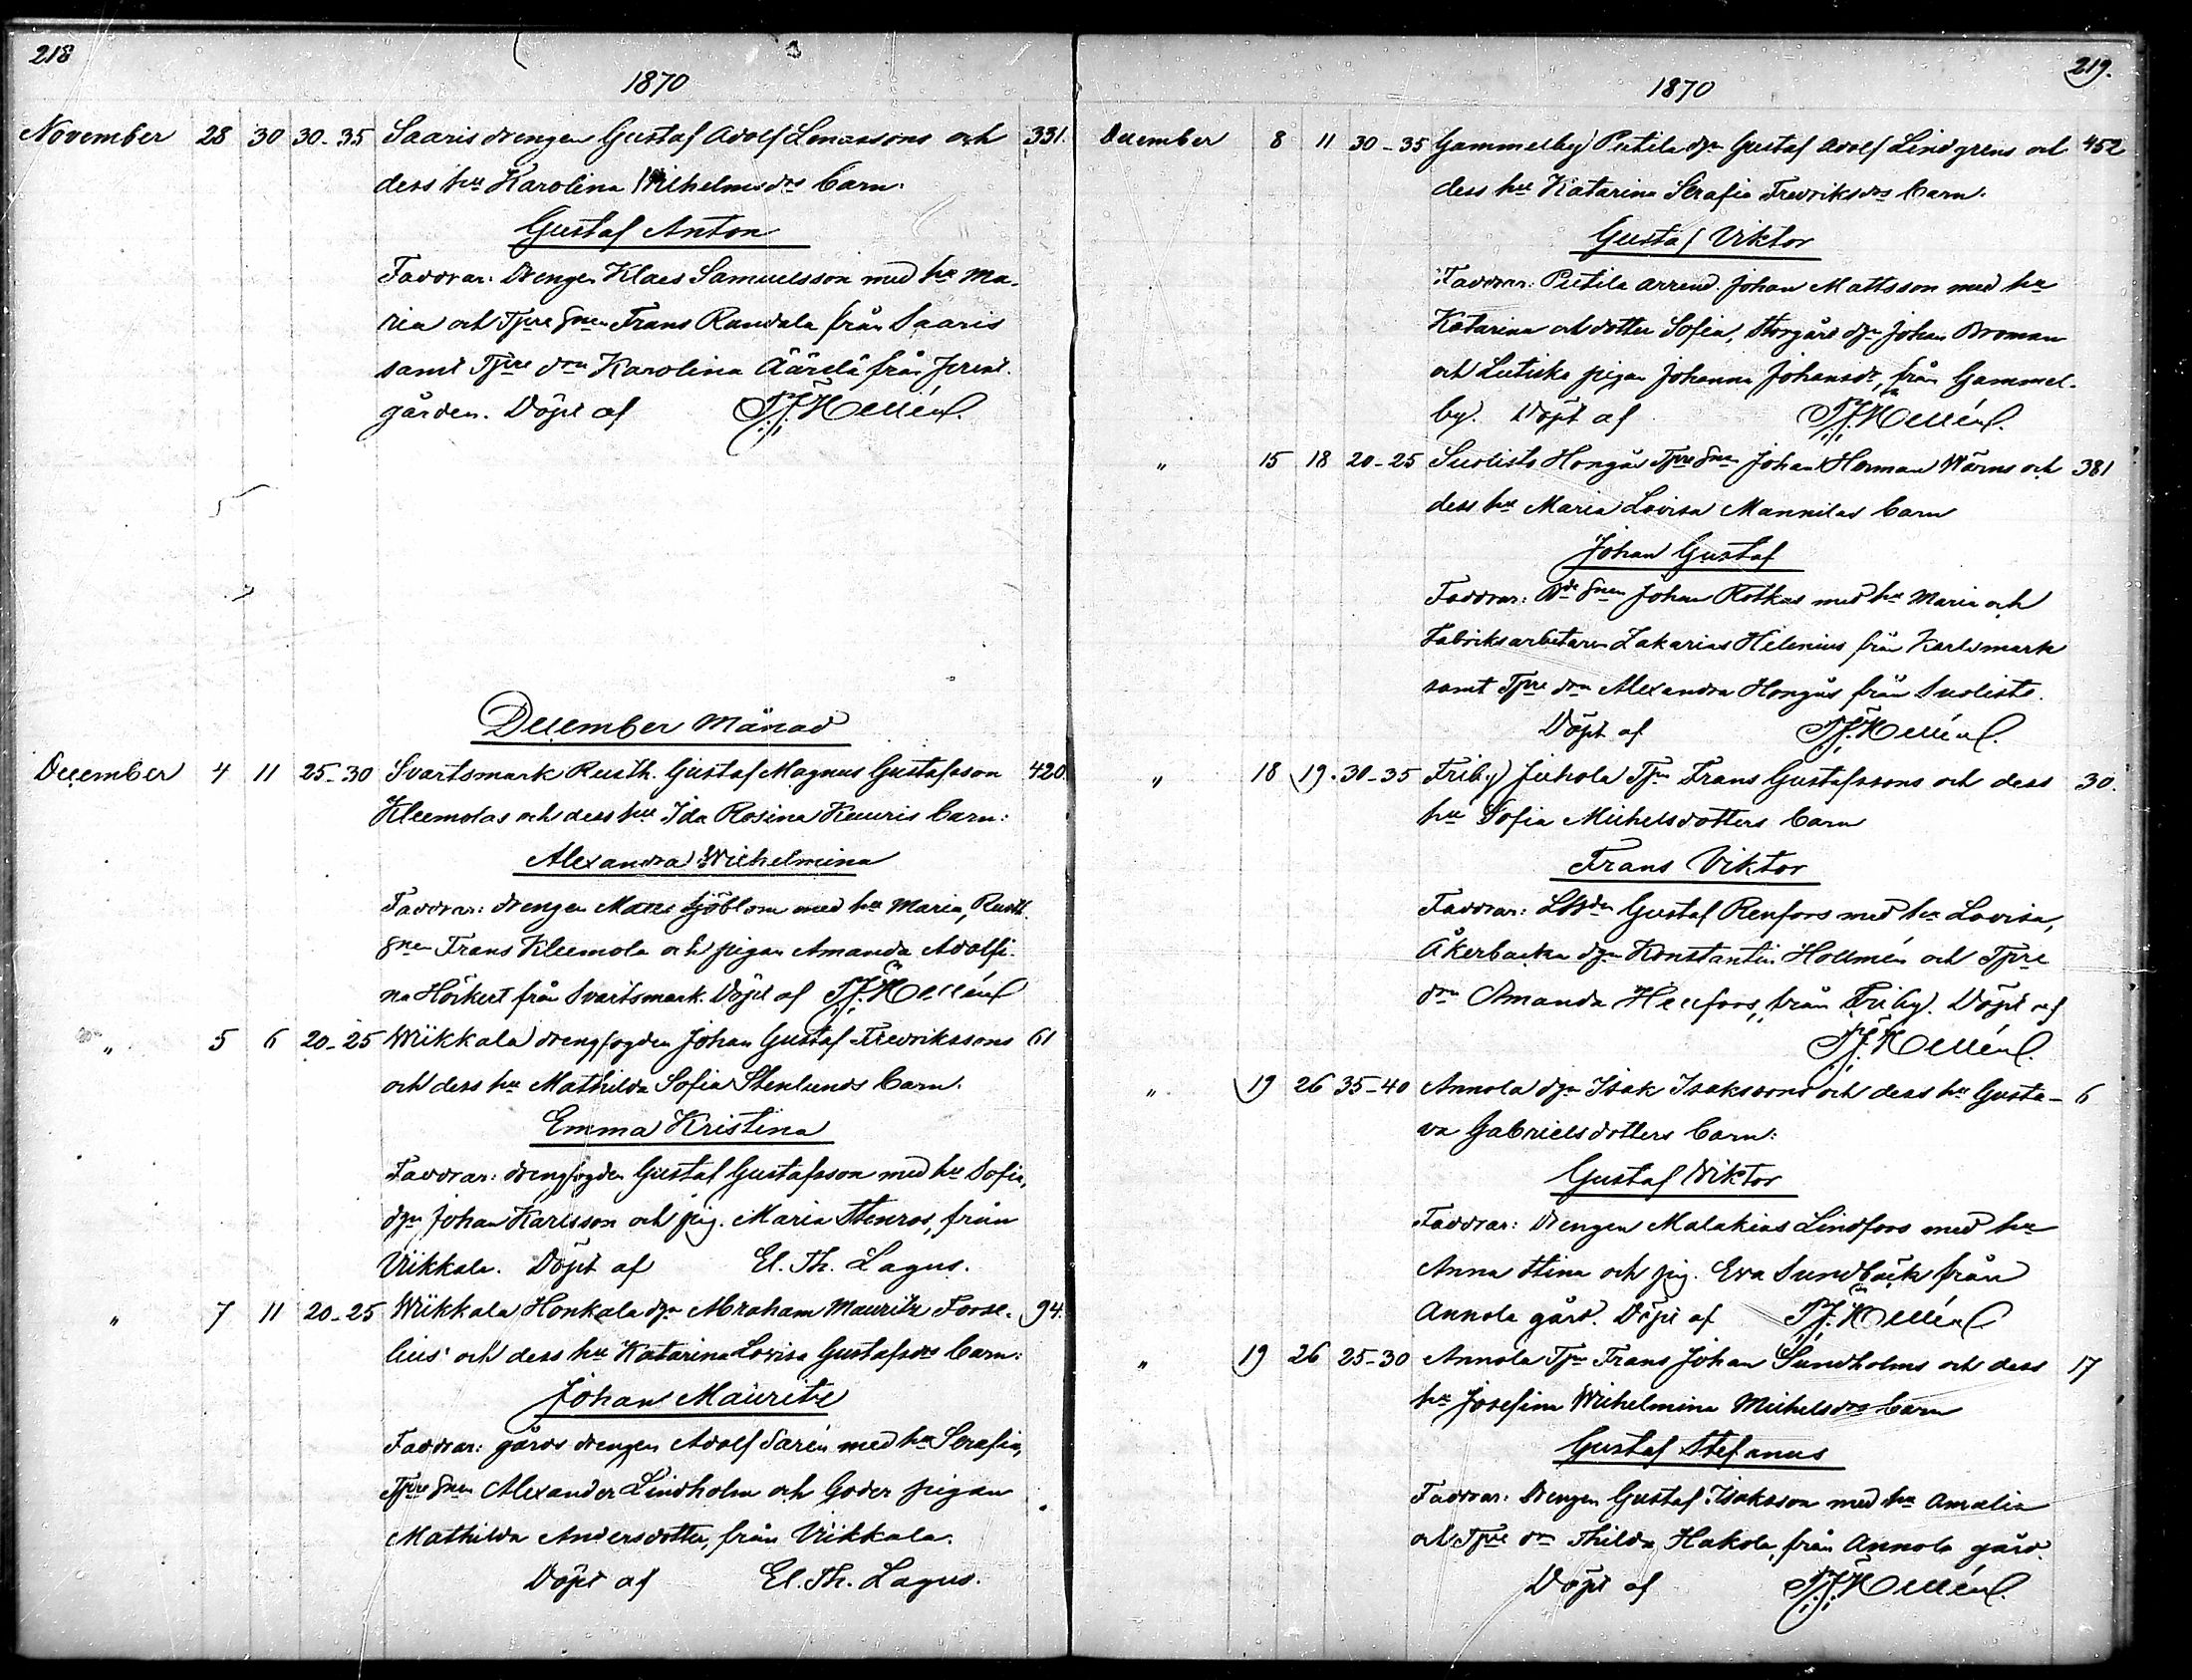 218
1870
November 28 30 30-35 Saaris drengen Gustaf Adolf Lenassons och 331.
dess hu Karolina Wilhelmsdrs barn:
Gustaf Anton
Faddrar: Drengen Klaes Samuelsson med hu Ma-
ria och Tjre Snen Frans Randala från Saaris
samt Tjre drn Karolina Äärelä från Prest-
gården. Döpt af
December Månad
December 4 11 25-30 Svartsmark Rusth. Gustaf Magnus Gustafsson 420.
Kleemolas och dess hu Ida Rosina Kuuris barn:
Alexandra Wilhelmina
Faddrar: drengen Matts Sjöblom med hu Maria, Rusth.
Snen Frans Kleemola och pigan Amanda Adolfi-
na Höckert från Svartsmark. Döpt af
" 5 6 20-25 Wiikkala drengfogden Johan Gustaf Fredrikssons 61
och dess hu Mathilda Sofia Stenlunds barn.
Emma Kristina
Faddrar: drengfogden Gustaf Gustafsson med hu Sofia,
dgn Johan Karlsson och pig. Maria Stenros, från
Viikkala. Döpt af El. Th. Lagus.
" 7 11 20-25 Wiikkala Honkala dgn Abraham Mauritz Forse- 94.
lius' och dess hu Katarina Lovisa Gustafsdrs barn:
Johan Mauritz
Faddrar: gårds drengen Adolf Sarén med hu Serafia,
Tjre Snen Alexander Lindholm och Goder pigan
Mathilda Andersdotter, från Viikkala.
Döpt af El. Th. Lagus.
219.
1870
December 8 11 30-35 Gammelby Pietila dgn Gustaf Adolf Lindgrens och 452
dess hu Katarina Serafia Fredriksdrs barn.
Gustaf Viktor
Faddrar: Pietila arrend. Johan Mattsson med hu
Katarina och dotter Sofia, Storgård dgn Johan Broman
och pigan Johanna Johansdr, från Gammel-
by. Döpt af
" 15 18 20-25 Suolisto Hongås Tjre Snen Johan Herman Wärns och 381
dess hu Maria Lovisa Mannilas barn
Johan Gustaf
Faddrar: Bde Snen Johan Rotkus med hu Maria och
Fabriksarbetaren Zakarias Helenius från Karlsmark
samt Tjre drn Alexandra Hongås från Suolisto.
Döpt af
" 18 19. 30-35 Friby Jukola Tjn Frans Gustafssons och dess 30.
hu Sofia Michelsdotters barn
Frans Viktor
Faddrar: Gustaf Renfors med hu Lovisa,
Åkerbacka dgn Konstantin Hollmén och Tjre
drn Amanda Hellfors, från Friby. Döpt af
" 19 26 35-40 Annola dgn Isak Isakssons och dess hu Gusta- 6
va Gabrielsdotters barn:
Gustaf Wiktor
Faddrar: Drengen Malakias Lindfors med hu
Anna Stina och pig. Eva Sundbäck från
Annola gård. Döpt af
" 19 26 25-30 Annola Tjn Frans Johan Sundholms och dess 17
hu Josefina Wilhelmina Michelsdrs barn
Gustaf Stefanus
Faddrar: Drengen Gustaf Isaksson med hu Amalia
och Tjre drn Thilda Hakola, från Annola gård.
Döpt af